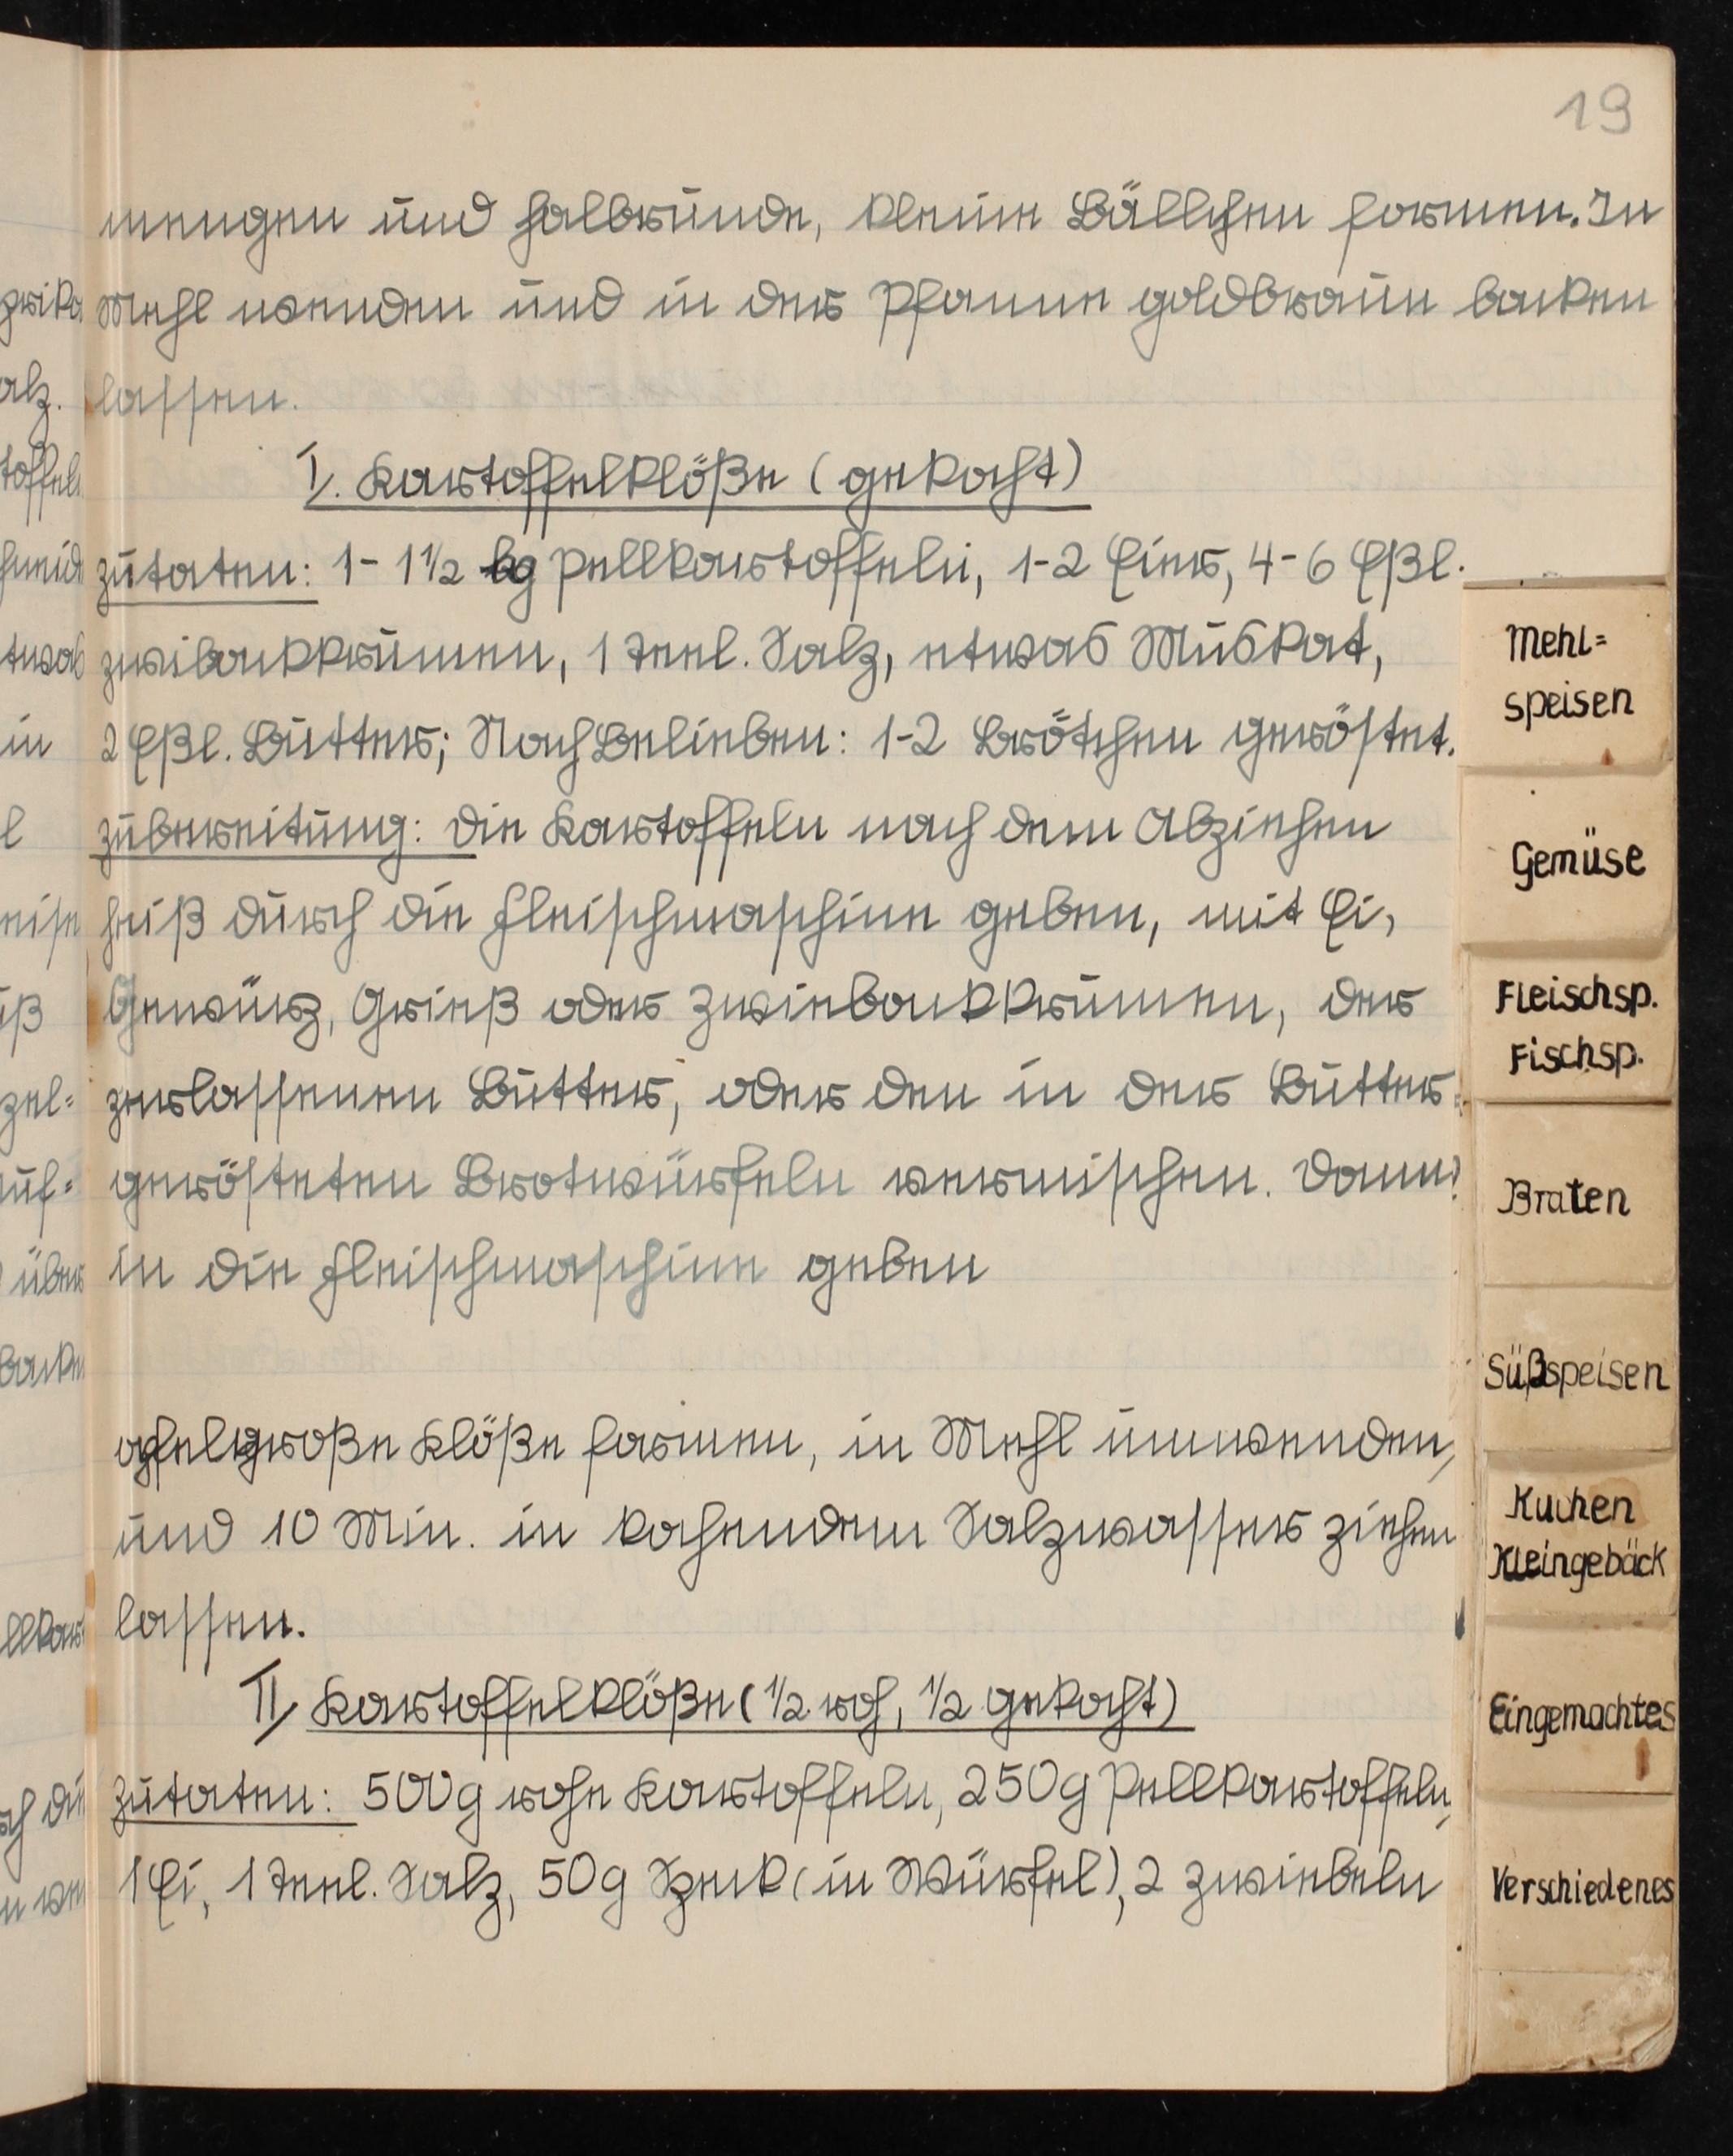 19
mengen und halbrunde, kleine Bällchen formen. In
Mehl wenden und in der Pfanne goldbraun backen
lassen.
I. Kartoffelklöße (gekocht)
Zutaten: 1- 1½ kg Pellkartoffeln, 1-2 Eier, 4-6 Eßl.
Zwibackkrumen, 1 Teel. Salz, etwas Muskat,
2 Eßl. Butter; Nach Belieben: 1-2 Brötchen geröstet.
Zubereitung: Die Kartoffeln nach dem Abziehen
heiß durch die Fleischmaschine geben, mit Ei,
Gewürz, Grieß oder Zwiebackkrumen, der
zerlassenen Butter, oder den in der Butter
gerösteten Brotwürfeln vermischen. Dann
in die Fleischmaschine geben
apfelgroße Klöße formen, in Mehl umwenden,
und 10 Min. in kochendem Salzwasser ziehen
lassen.
II, Kartoffelklöße (½ roh, ½ gekocht)
Zutaten: 500g rohe Kartoffeln, 250g Pellkartoffeln,
1 Ei, 1 Teel. Salz, 50g Speck (in Würfel), 2 Zwiebeln
Mehl=
speisen
Gemüse
Fleischsp.
Fischsp.
Braten
Süßspeisen
Kuchen
Kleingebäck
Eingemachtes
Verschiedenes